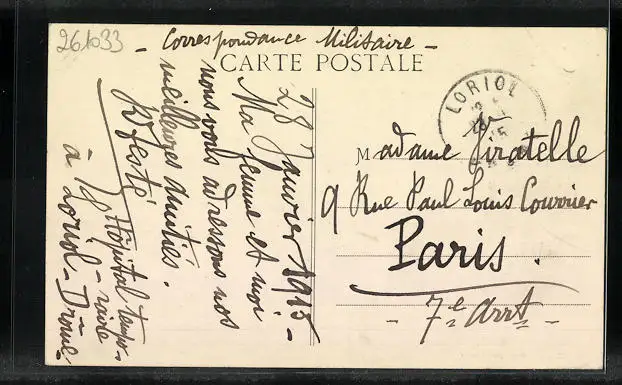 261033
- Correspondance Militaire -
CARTE POSTALE
28 Janvier 1915 -
Ma femme et moi
nous vous adressons nos
meilleures amitiés.
Hôpital tempo-
- raire
à Loriol - Drôme -
LORIOL
Madame Viratelle
9 Rue Paul Louis Courrier
Paris.
- 7e Arrt -